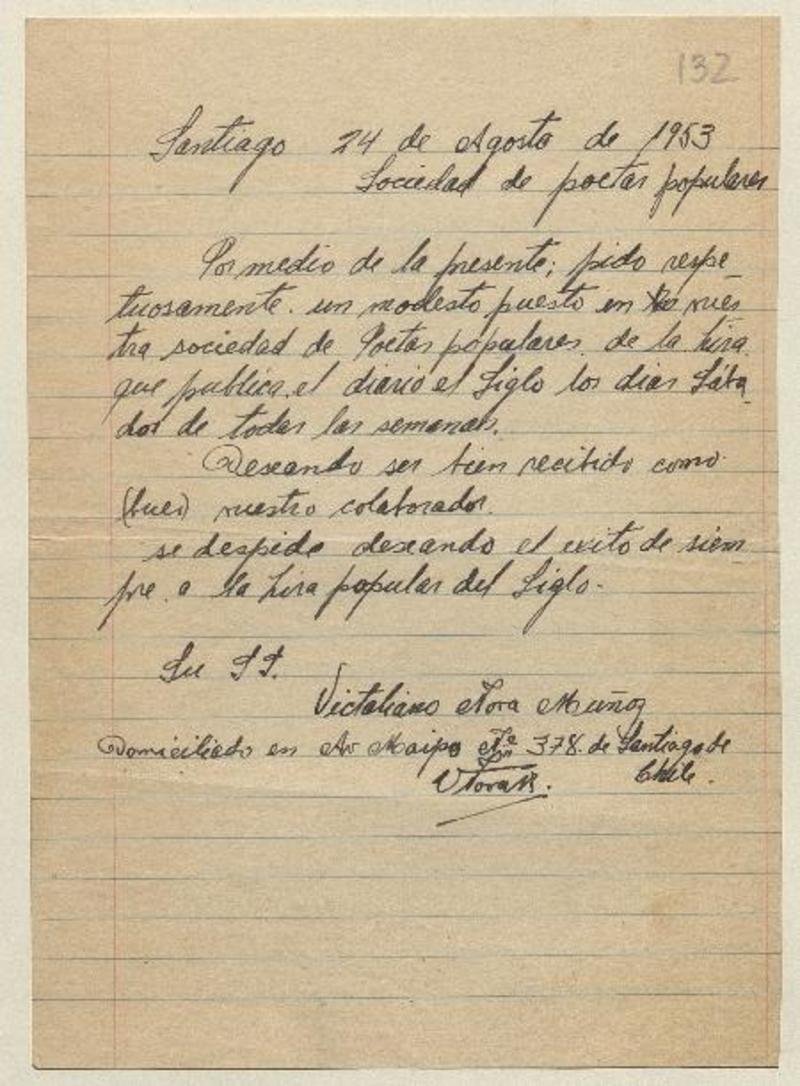 132
Santiago 24 de Agosto de 1953
Sociedad de poetas populares
Por medio de la presente; pido respe_
tuosamente. un modesto puesto en nues_
tra sociedad de Poetas populares. de la Lira.
que publica. el diario el Siglo los dias Sába_
dos de todas las semanas.
Deseando ser bien recibido como
(buen) nuestro colaborador.
se despide deseando el exito de siem_
pre a la Lira popular del Siglo.
Su SS.
Victaliano Tora Muñoz
Domiciliado en Av Maipo Nº 378. de Santiago de
Chile.